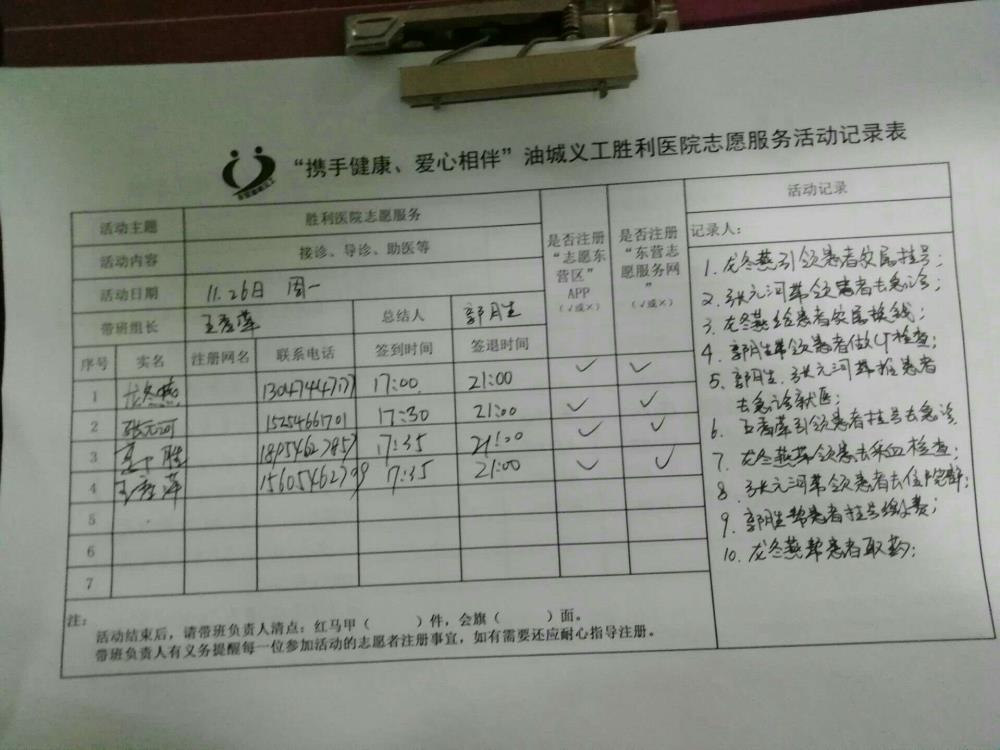 “携手健康、爱心相伴”油城义工胜利医院志愿服务活动记录表
活动主题 胜利医院志愿服务
活动内容 接诊、导诊、助医等
活动日期 11.26日 周一
带班组长 王秀萍 总结人 郭月生
是否注册“志愿东营区”APP（√或×）
是否注册“东营志愿服务网”（√或×）
序号 实名 注册网名 联系电话 签到时间 签退时间
1 龙冬燕 13047444777 17:00 21:00 ✓ ✓
2 张元河 15254661701 17:30 21:00 ✓ ✓
3 1895462785 17:35 21:00 ✓ ✓
4 王秀萍 15605462799 17:35 21:00 ✓ ✓
5
6
7
注：
活动结束后，请带班负责人清点：红马甲（ ）件，会旗（ ）面。
带班负责人有义务提醒每一位参加活动的志愿者注册事宜，如有需要还应耐心指导注册。
活动记录
记录人：
1. 龙冬燕引领患者家属挂号；
2. 张元河带领患者去急诊；
3. 龙冬燕给患者家属换钱；
4. 郭月生带领患者做CT检查；
5. 郭月生、张元河帮推患者
去急诊就医；
6. 王秀萍引领患者挂号去急诊
7. 龙冬燕带领患去采血检查；
8. 张元河带领患者去住院部；
9. 郭月生帮患者挂号缴费；
10. 龙冬燕帮患者取药；